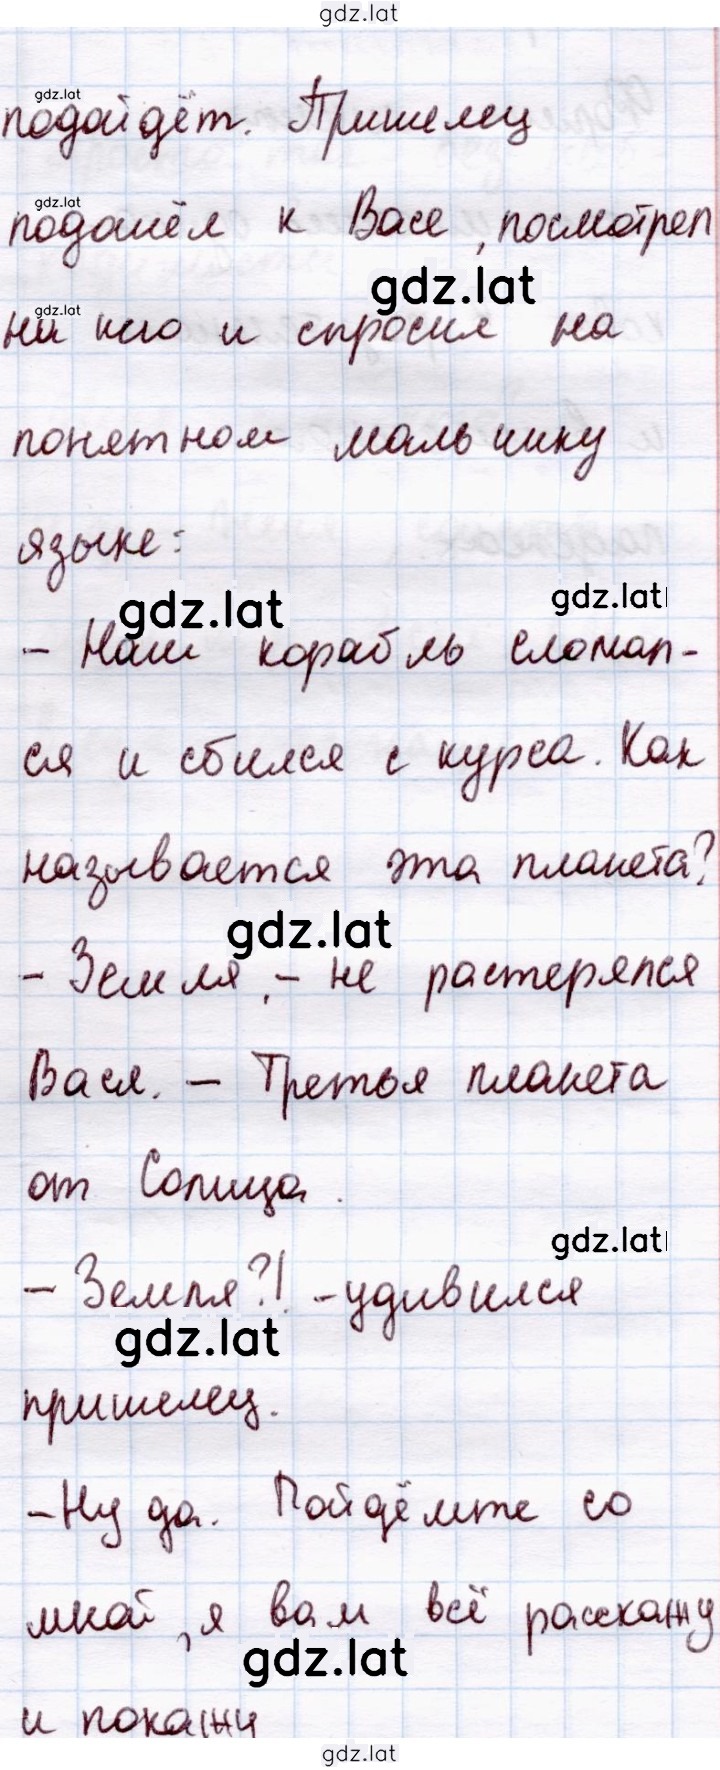 gdz.lat
gdz.lat
подойдёт. Пришелец
gdz.lat
подошёл к Васе, посмотрел
gdz.lat
gdz.lat
на него и спросил на
понятном мальчику
языке:
gdz.lat
gdz.lat
- Наш корабль сломал-
ся и сбился с курса. Как
называется эта планета?
gdz.lat
- Земля, - не растерялся
Вася. - Третья планета
от Солнца.
gdz.lat
- Земля?! - удивился
gdz.lat
пришелец.
- Ну да. Пойдёмте со
мной, я вам всё расскажу
gdz.lat
и покажу
gdz.lat